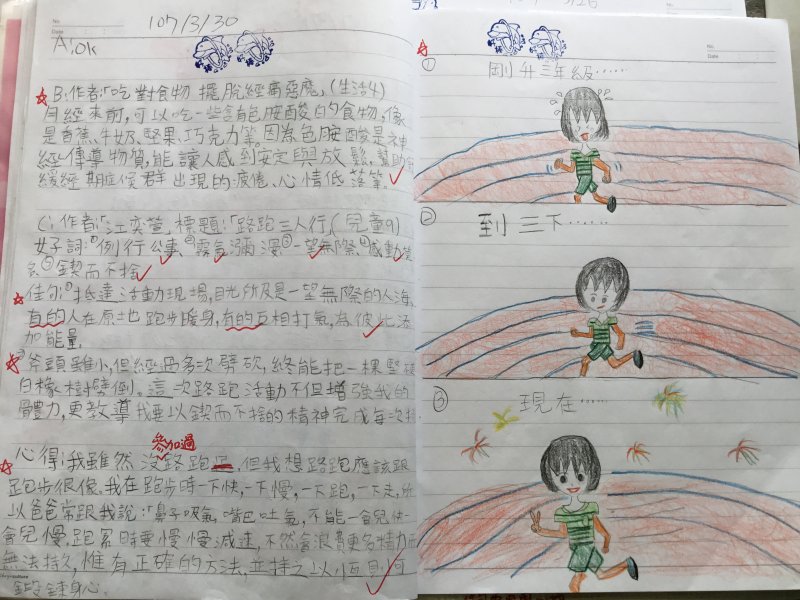 No.
Date
107/3/30
A:ok
B:作者:「吃對食物 擺脫經痛惡魔」(生活4)
月經來前,可以吃一些含有色胺酸的食物,像
是香蕉、牛奶、堅果、巧克力等。因為色胺酸是神
經傳導物質,能讓人感到安定與放鬆,幫助
緩經期症候群出現的疲倦、心情低落等。
C:作者:「江奕萱」標題:「路跑三人行」(兒童9)
好詞:①例行公事、②霧氣瀰漫③一望無際、④感動
⑤鍥而不捨
佳句:①抵達活動現場,目光所及是一望無際的人海,
有的人在原地跑步暖身,有的互相打氣,為彼此添
加能量。
②斧頭雖小,但經過多次劈砍,終能把一棵堅硬
的橡樹劈倒。這一次路跑活動不但增強我的
體力,更教導我要以鍥而不捨的精神完成每次
參加過
心得:我雖然沒路跑過,但我想路跑應該跟
跑步很像。我在跑步時一下快,一下慢,一下跑,一下走,所
以爸爸常跟我說:「鼻子吸氣,嘴巴吐氣,不能一會兒快一
會兒慢,跑累時要慢慢減速,不然會浪費更多精力而
無法持久,惟有正確的方法,並持之以恆,則可
鍛鍊身心。
No.
Date
① 剛升三年級……
② 到三下……
③ 現在……